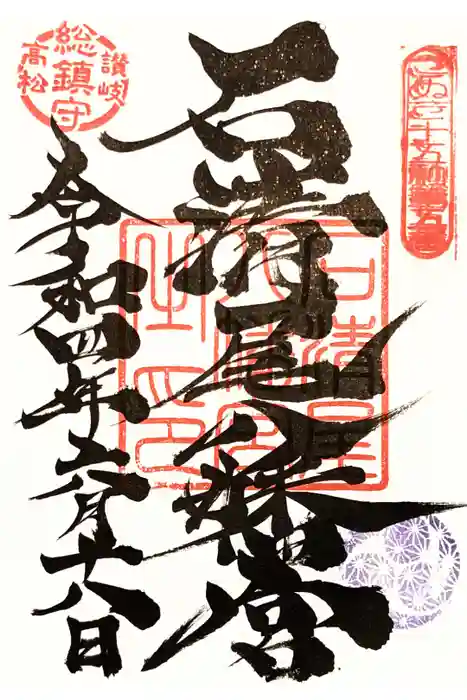 讃岐
総鎮守
高松
石清尾八幡宮
石清尾
八幡宮
之印
令和四年六月十八日